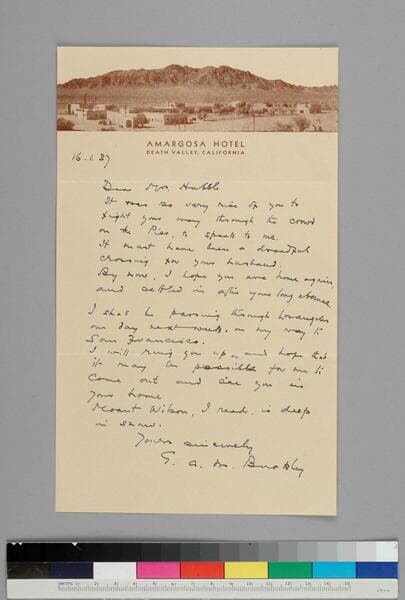 AMARGOSA HOTEL
DEATH VALLEY, CALIFORNIA
16.1.37
Dear Mrs. Hubble
It was so very nice of you to
fight your way through the crowd
on the Pier, to speak to me.
It must have been a dreadful
crossing for your husband.
By now, I hope you are home again,
and settled in after your long absence.
I shall be passing through Los Angeles
one day next week, on my way to
San Francisco.
I will ring you up, and hope that
it may be possible for me to
come out and see you in
your home.
Mount Wilson, I read, is deep
in snow.
Yours sincerely
G. A. M. Buckley
1 2 3 4 5 6 7 8 9 10 11 12 13 14 15